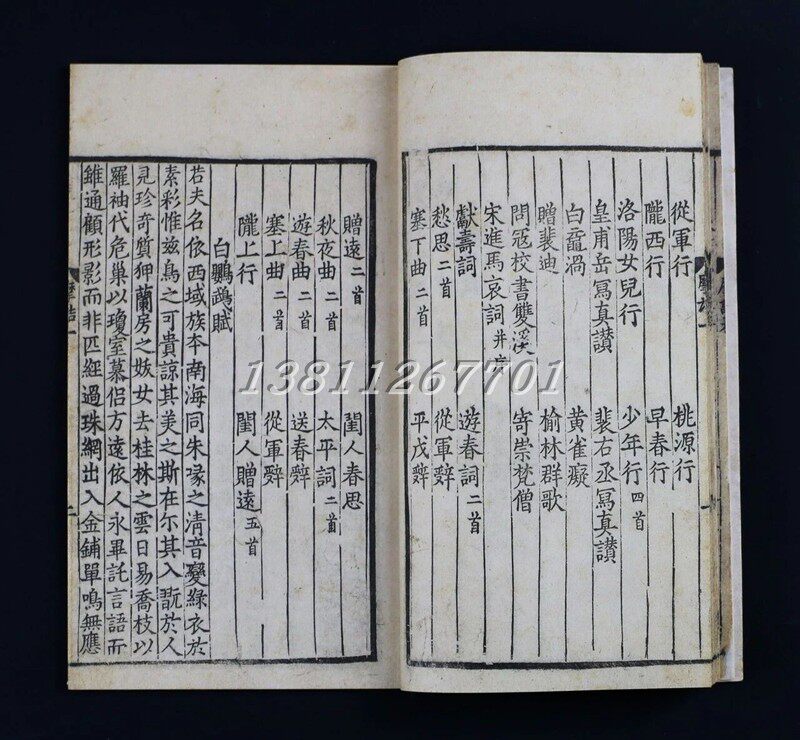 從軍行 桃源行
隴西行 早春行
洛陽女兒行 少年行四首
皇甫岳寫真讃 裴右丞寫真讃
白黿渦 黄雀癡
贈裴迪 榆林群歌
問㓂校書雙溪 寄崇梵僧
宋進馬哀詞并序
獻壽詞 遊春詞二首
愁思二首 從軍辤
塞下曲二首 平戎辤
贈遠二首 閨人春思
秋夜曲二首 太平詞二首
遊春曲二首 送春辤
塞上曲二首 從軍辤
隴上行 閨人贈遠五首
白鸚鵡賦
若夫名依西域族本南海同朱喙之清音變綠衣於
素彩惟兹鳥之可貴諒其美之斯在尔其入翫於人
見珍奇質狎蘭房之妓女去桂林之雲日易喬枝以
羅袖代危巢以瓊室慕侣方遠依人永畢託言語而
雖通顧形影而非匹經過珠網出入金鋪單鳴無應
13811267701